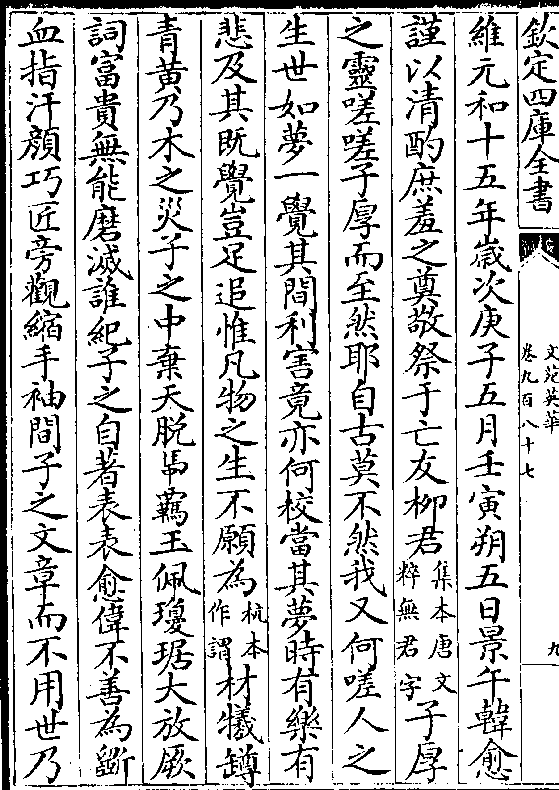 欽定四庫全書
文苑英華
卷九百八十七
九
維元和十五年歲次庚子五月壬寅朔五日景午韓愈
謹以清酌庶羞之奠敬祭于亡友柳君集本唐文粹無君字子厚
之靈嗟嗟子厚而至然耶自古莫不然我又何嗟人之
生世如夢一覺其間利害竟亦何校當其夢時有樂有
悲及其既覺豈足追惟凡物之生不願為杭本作謂材犧罇
青黃乃木之災子之中棄天脫馽羈玉佩瓊琚大放厥
詞富貴無能磨滅誰紀子之自著表表愈偉不善為斵
血指汗顏巧匠旁觀縮手袖間子之文章而不用世乃